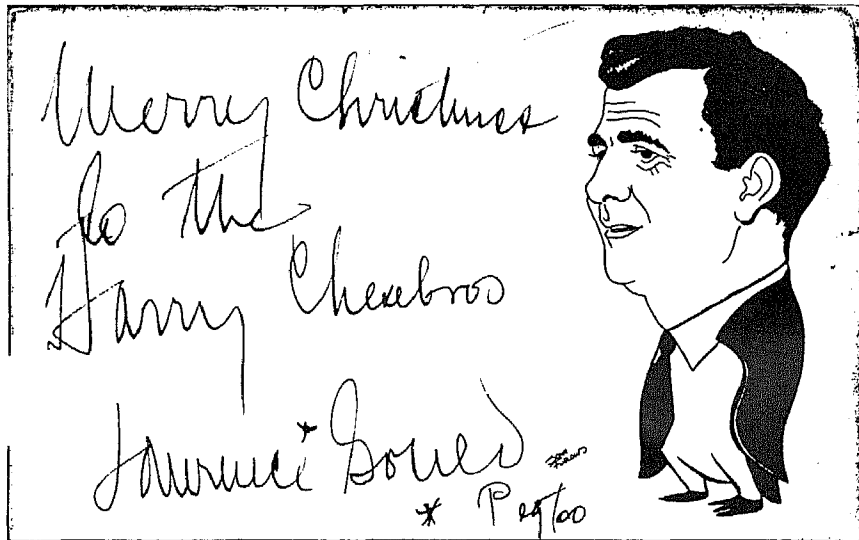 Merry Christmas
to the
Harry Chesebros
Laurence * Gould
* Peg too